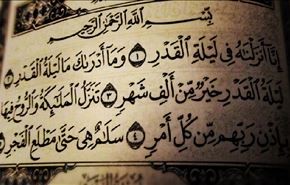 بِسْمِ اللَّهِ الرَّحْمَٰنِ الرَّحِيمِ
إِنَّا أَنزَلْنَاهُ فِي لَيْلَةِ الْقَدْرِ ۝١ وَمَا أَدْرَاكَ مَا لَيْلَةُ الْقَدْرِ ۝٢
لَيْلَةُ الْقَدْرِ خَيْرٌ مِّنْ أَلْفِ شَهْرٍ ۝٣ تَنَزَّلُ الْمَلَائِكَةُ وَالرُّوحُ فِيهَا
بِإِذْنِ رَبِّهِم مِّن كُلِّ أَمْرٍ ۝٤ سَلَامٌ هِيَ حَتَّىٰ مَطْلَعِ الْفَجْرِ